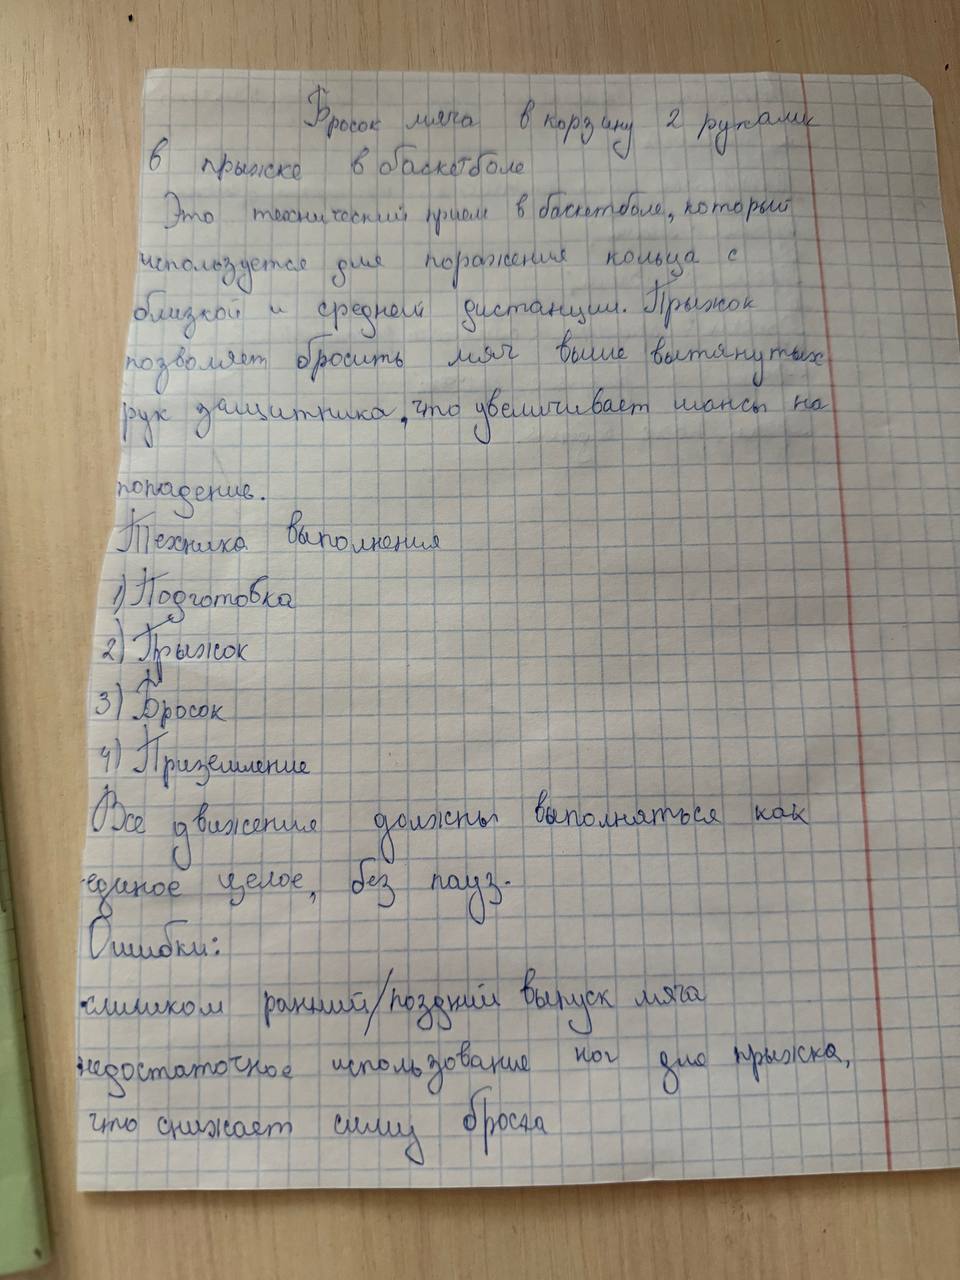 Бросок мяча в корзину 2 руками
в прыжке в баскетболе
Это технический прием в баскетболе, который
используется для поражения кольца с
близкой и средней дистанции. Прыжок
позволяет бросить мяч выше вытянутых
рук защитника, что увеличивает шансы на
попадение.
Техника выполнения
1) Подготовка
2) Прыжок
3) Бросок
4) Приземление
Все движения должны выполняться как
единое целое, без пауз.
Ошибки:
слишком ранний/поздний выпуск мяча
недостаточное использование ног для прыжка,
что снижает силу броска